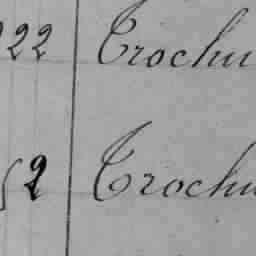 22 Trochu
52 Trochu